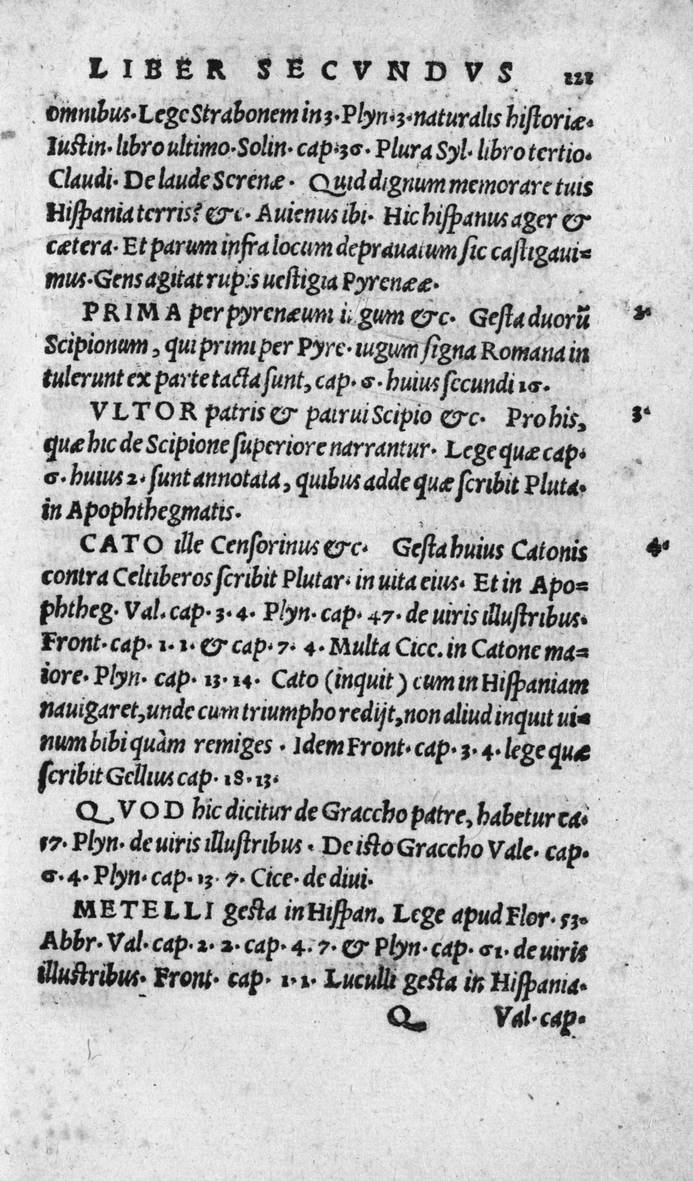 LIBER SECVNDVS 121
omnibus. Lege Strabonem in 3. Plyn. 3. naturalis historiæ.
Iustin. libro ultimo. Solin. cap. 36. Plura Syl. libro tertio.
Claudi. De laude Serenæ. Quid dignum memorare tuis
Hispania terris? &c. Auienus ibi. Hic hispanus ager &
cætera. Et parum infra locum deprauatum sic castigaui=
mus. Gens agitat rupis uestigia Pyrenææ.
PRIMA per pyrenæum iugum &c. Gesta duorũ 2.
Scipionum, qui primi per Pyre. iugum signa Romana in
tulerunt ex parte tacta sunt, cap. 6. huius secundi 16.
VLTOR patris & patrui Scipio &c. Pro his, 3.
quæ hic de Scipione superiore narrantur. Lege quæ cap.
6. huius 2. sunt annotata, quibus adde quæ scribit Pluta.
in Apophthegmatis.
CATO ille Censorinus &c. Gesta huius Catonis 4.
contra Celtiberos scribit Plutar. in uita eius. Et in Apo=
phtheg. Val. cap. 3. 4. Plyn. cap. 47. de uiris illustribus.
Front. cap. 1. 1. & cap. 7. 4. Multa Cice. in Catone ma=
iore. Plyn. cap. 13. 14. Cato (inquit) cum in Hispaniam
nauigaret, unde cum triumpho redijt, non aliud inquit ui=
num bibi quàm remiges. Idem Front. cap. 3. 4. lege quæ
scribit Gellius cap. 18. 13.
QVOD hic dicitur de Graccho patre, habetur ca.
57. Plyn. de uiris illustribus. De isto Graccho Vale. cap.
6. 4. Plyn. cap. 13. 7. Cice. de diui.
METELLI gesta in Hispan. Lege apud Flor. 53.
Abbr. Val. cap. 2. 2. cap. 4. 7. & Plyn. cap. 61. de uiris
illustribus. Front. cap. 1. 1. Luculli gesta in Hispania.
Q Val. cap.